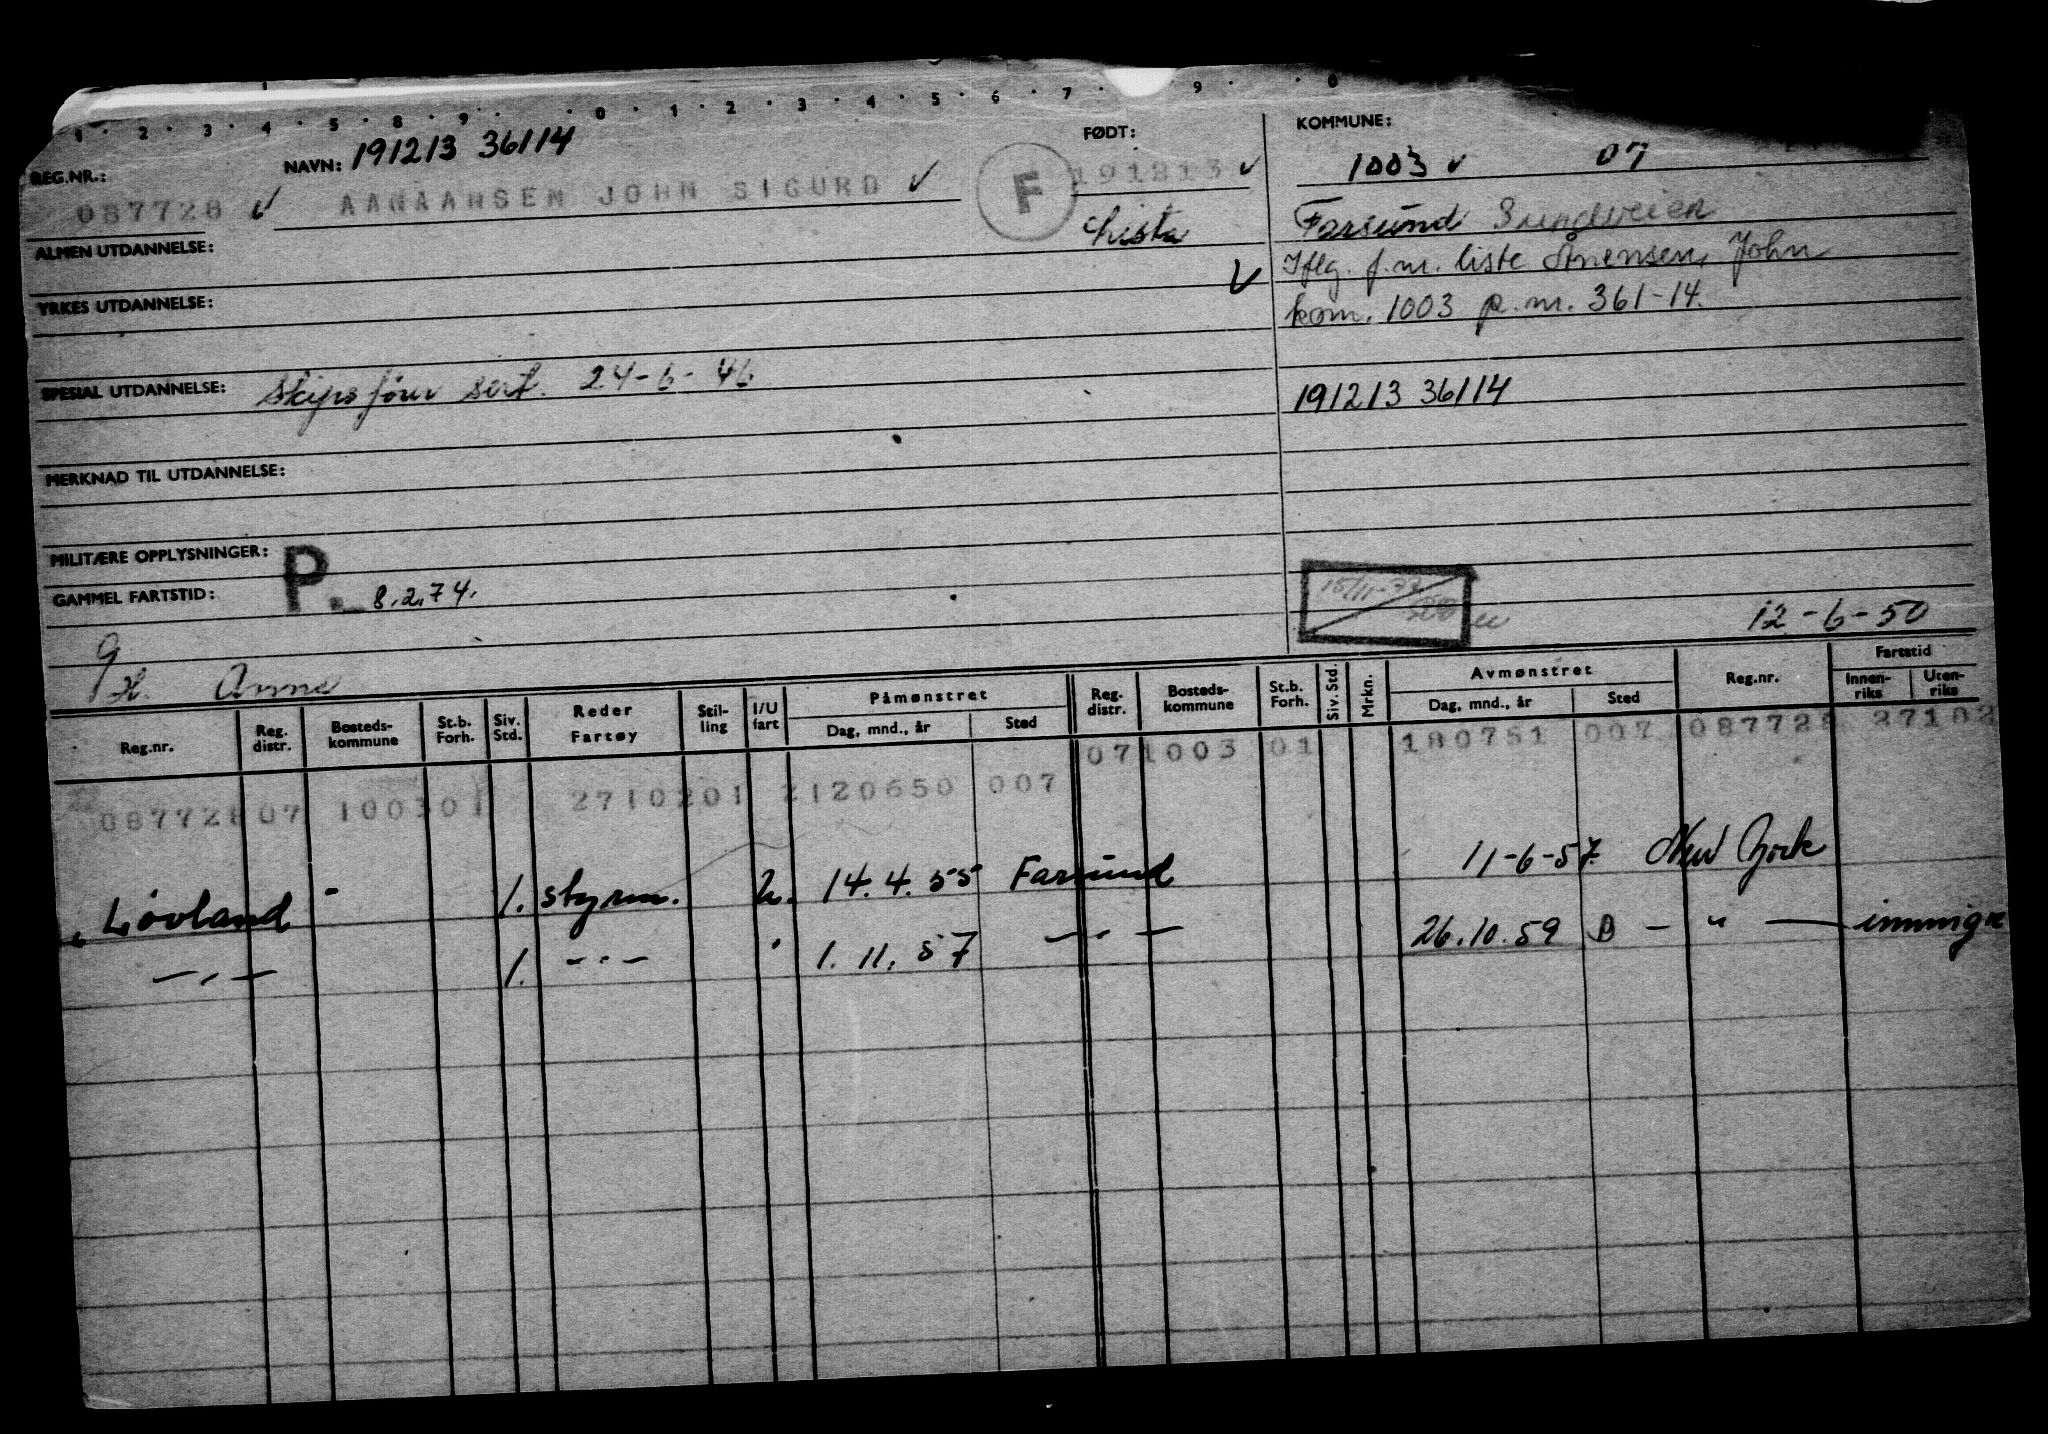 1 · 2 · 3 · 4 · 5 · 8 · 9 · 0 · 1 · 2 · 3 · 4 · 5 · 6 · 7 · 9 · 0
REG.NR.: NAVN: 191213 36114 FØDT: KOMMUNE:
087728 ✓ AANAANSEN JOHN SIGURD ✓ F 191213 ✓ 1003 ✓ 07
Lista Farsund Sundveien
ALMEN UTDANNELSE: Iflg. f.m. liste Ånensen, John
YRKES UTDANNELSE: ✓ kom. 1003 p.nr. 361-14.
SPESIAL UTDANNELSE: Skipsfører sert. 24-6-46 191213 36114
MERKNAD TIL UTDANNELSE:
MILITÆRE OPPLYSNINGER: P.
GAMMEL FARTSTID: 8.2.74. 12-6-50
G
H. Anna
Reg.nr. Reg. distr. Bosteds-kommune St.b. Forh. Siv. Std. Reder Fartøy Stil-ling I/U fart Påmønstret Dag, mnd., år Sted Reg. distr. Bosteds-kommune St.b. Forh. Siv. Std. Mrkn. Avmønstret Dag, mnd., år Sted Reg.nr. Fartstid Innen-riks Uten-riks
087728 07 1003 01 2710201 2120650 007 07 1003 01 180751 007 087728 27102
" Lovland - 1. styrm. 2. 14.4.55 Farsund 11-6-57. New York
— " — 1. - " - ' 1.11.57 — " — 26.10.59 B — " —